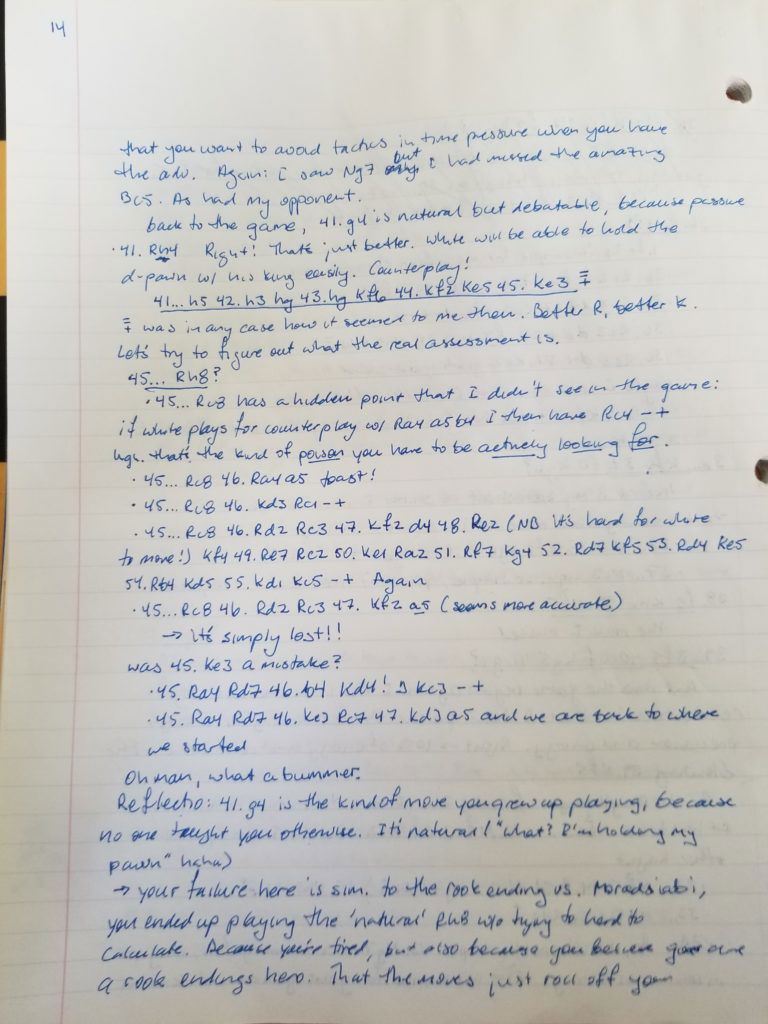 14
that you want to avoid tactics in time pressure when you have
the adv. Again: I saw Ng7 but I had missed the amazing
Bc5. As had my opponent.
back to the game, 41. g4 is natural but debatable, because passive
· 41. Rh4 Right! That's just better. White will be able to hold the
d-pawn w/ his king easily. Counterplay!
41... h5 42. h3 hg 43. hg Kf6 44. Kf2 Ke5 45. Ke3 ∓
∓ was in any case how it seemed to me then. Better R, better K.
Let's try to figure out what the real assessment is.
45... Rh8?
· 45... Rc8 has a hidden point that I didn't see in the game:
if white plays for counterplay w/ Ra4 a5 b4 I then have Rc4 -+
that's the kind of poison you have to be actively looking for.
· 45... Rc8 46. Ra4 a5 toast!
· 45... Rc8 46. Kd3 Rc1 -+
· 45... Rc8 46. Rd2 Rc3 47. Kf2 d4 48. Re2 (NB it's hard for white
to move!) Kf4 49. Re7 Rc2 50. Ke1 Ra2 51. Rf7 Kg4 52. Rd7 Kf5 53. Rd4 Ke5
54. Rb4 Kd5 55. Kd1 Kc5 -+ Again
· 45... Rc8 46. Rd2 Rc3 47. Kf2 a5 (seems more accurate)
→ it's simply lost!!
was 45. Ke3 a mistake?
· 45. Ra4 Rd7 46. b4 Kd4! Δ Kc3 -+
· 45. Ra4 Rd7 46. Ke3 Rc7 47. Kd3 a5 and we are back to where
we started
Oh man, what a bummer.
Reflectio: 41. g4 is the kind of move you grew up playing, because
no one taught you otherwise. It's natural ("what? I'm holding my
pawn" haha)
→ your failure here is sim. to the rook ending vs. Moradsiabi,
you ended up playing the 'natural' Rh8 w/o trying to hard to
calculate. Because you're tired, but also because you believe you are
a rook endings hero. That the moves just roll off your